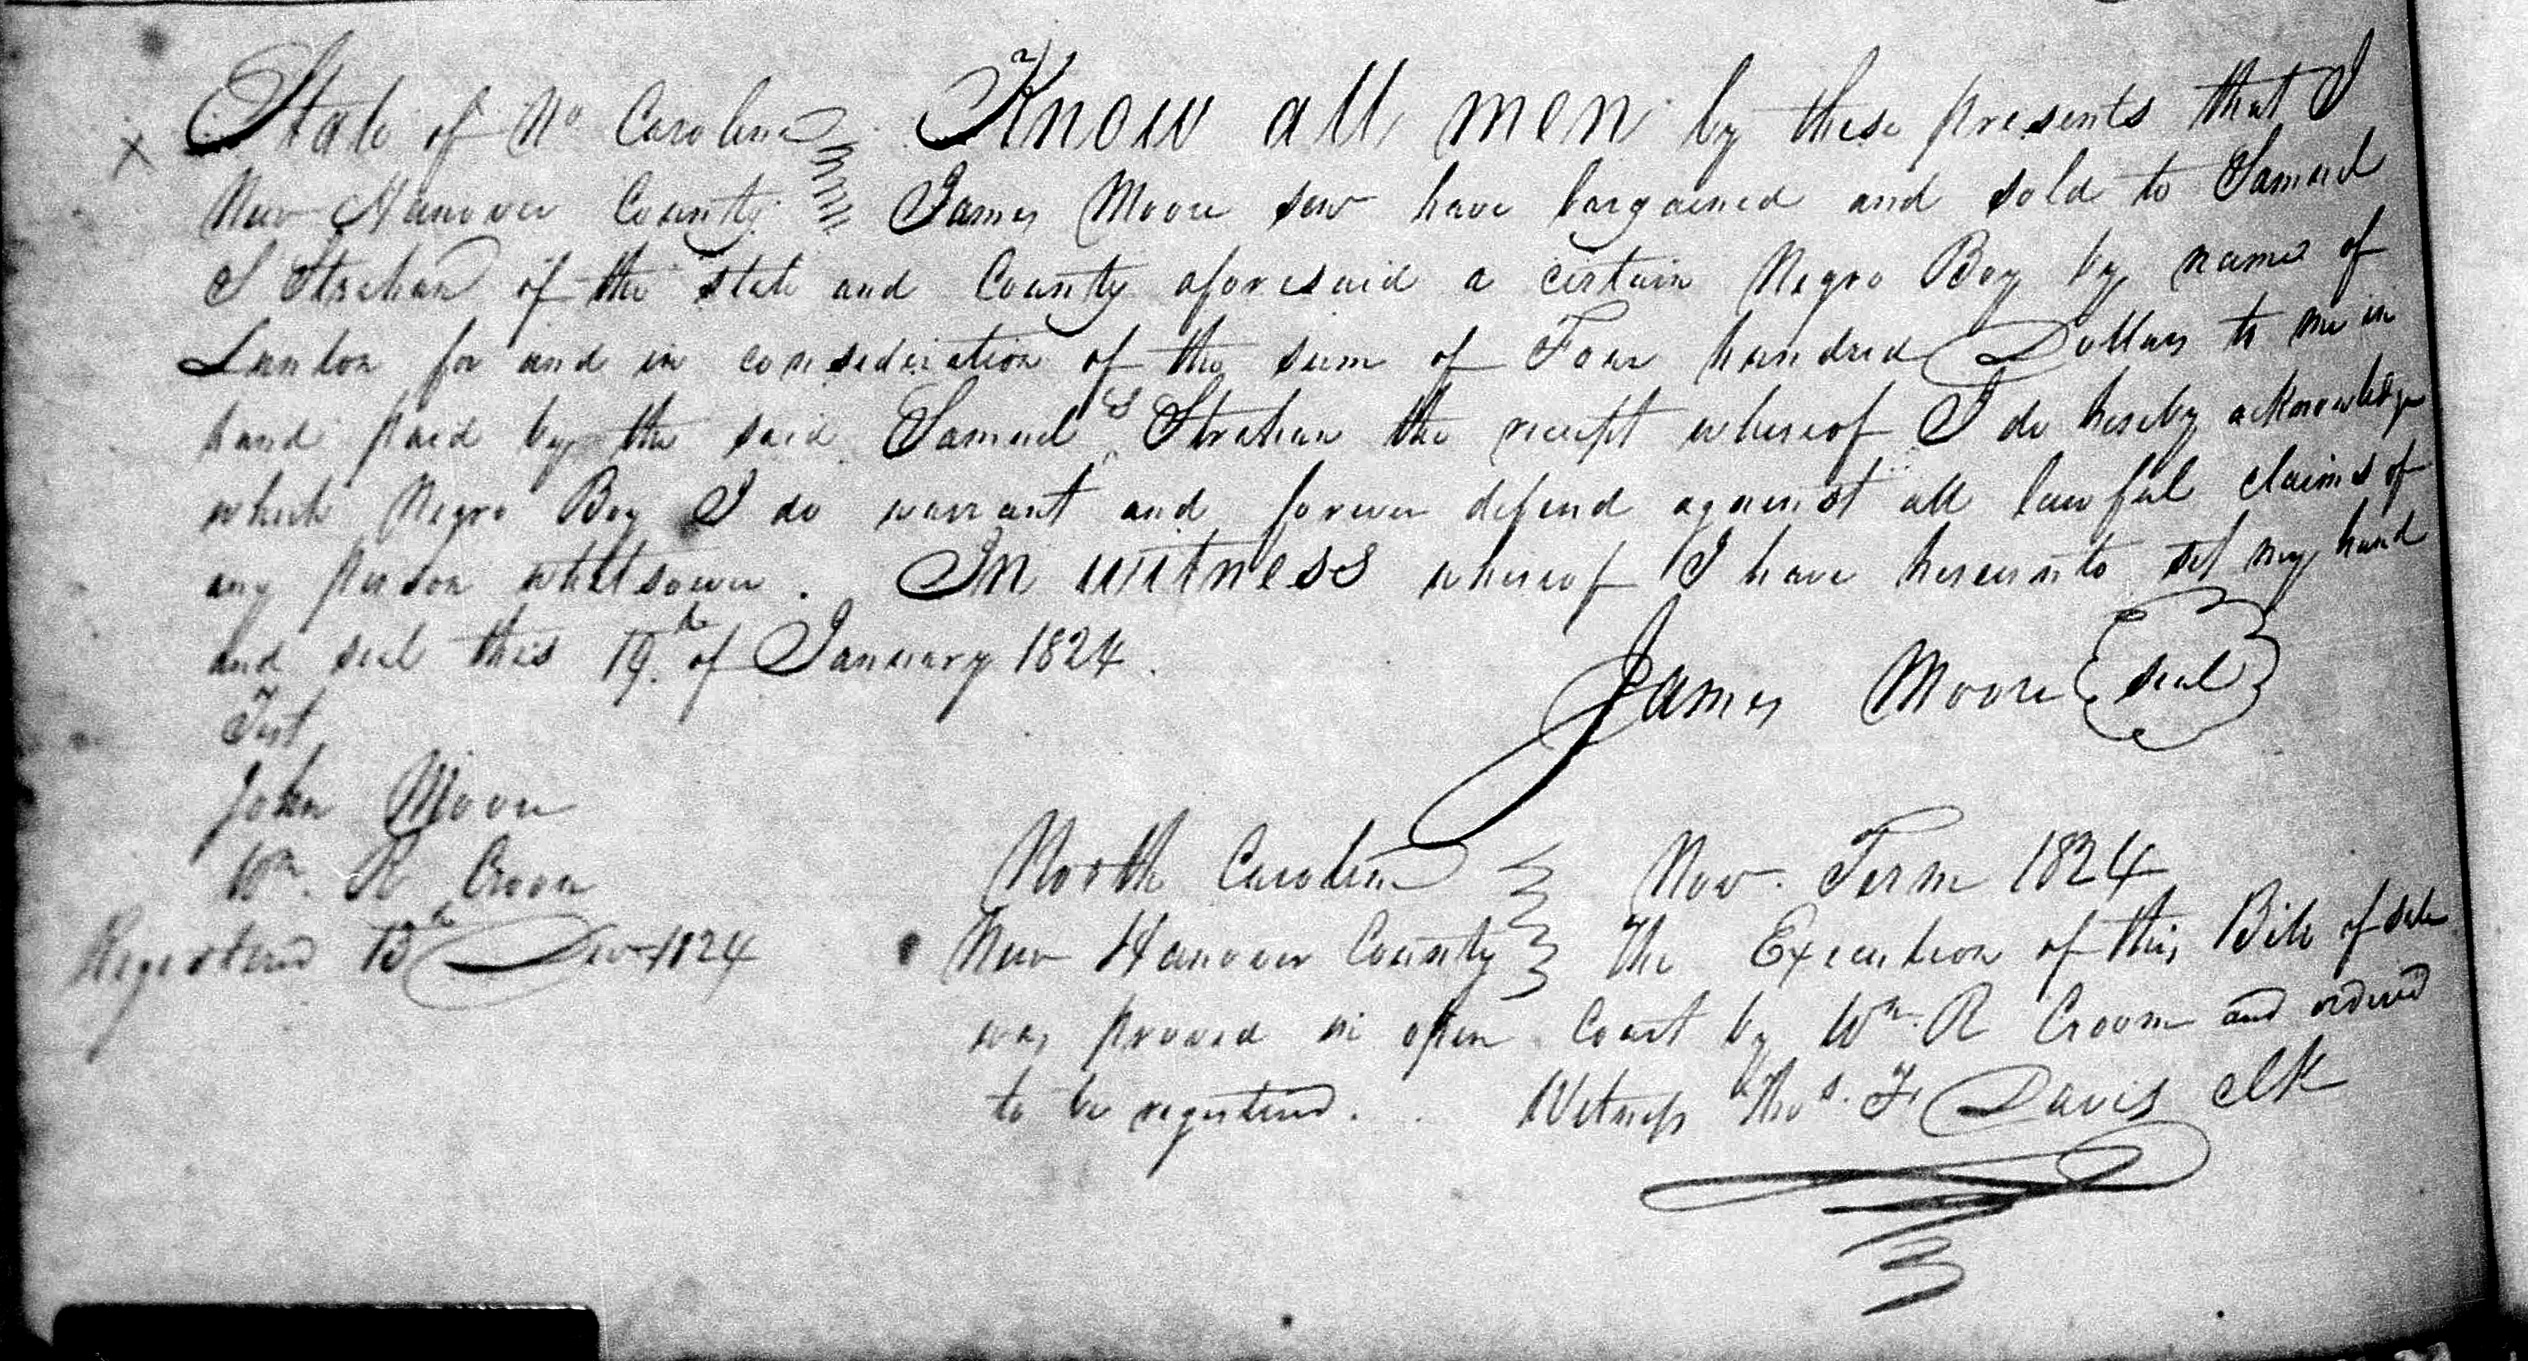 State of No Carolina Know all men by these presents that I
New Hanover County James Moore senr have bargained and sold to Samuel
S Strahan of the state and County aforesaid a certain Negro Boy by name of
for and in consideration of the sum of Four hundred Dollars to me in
hand paid by the said Samuel S Strahan the receipt whereof I do hereby acknowledge
which Negro Boy I do warrant and forever defend against all lawful claims of
any person whatsoever. In witness whereof I have hereunto set my hand
and seal this 19th of January 1824.
James Moore seal
Test
John Moore
Wm. R Croom
Registered 13th Decr 1824
North Carolina Nov. Term 1824
New Hanover County The Execution of this Bill of sale
was proved in open Court by Wm. R Croom and ordered
to be registered. Witness Thos. F Davis Clk